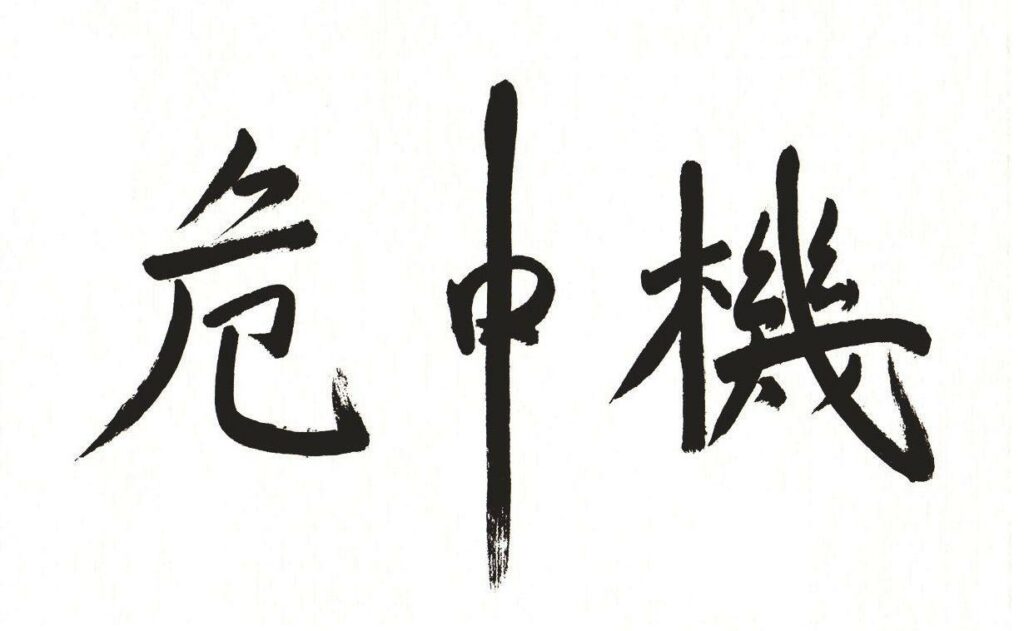 危中機